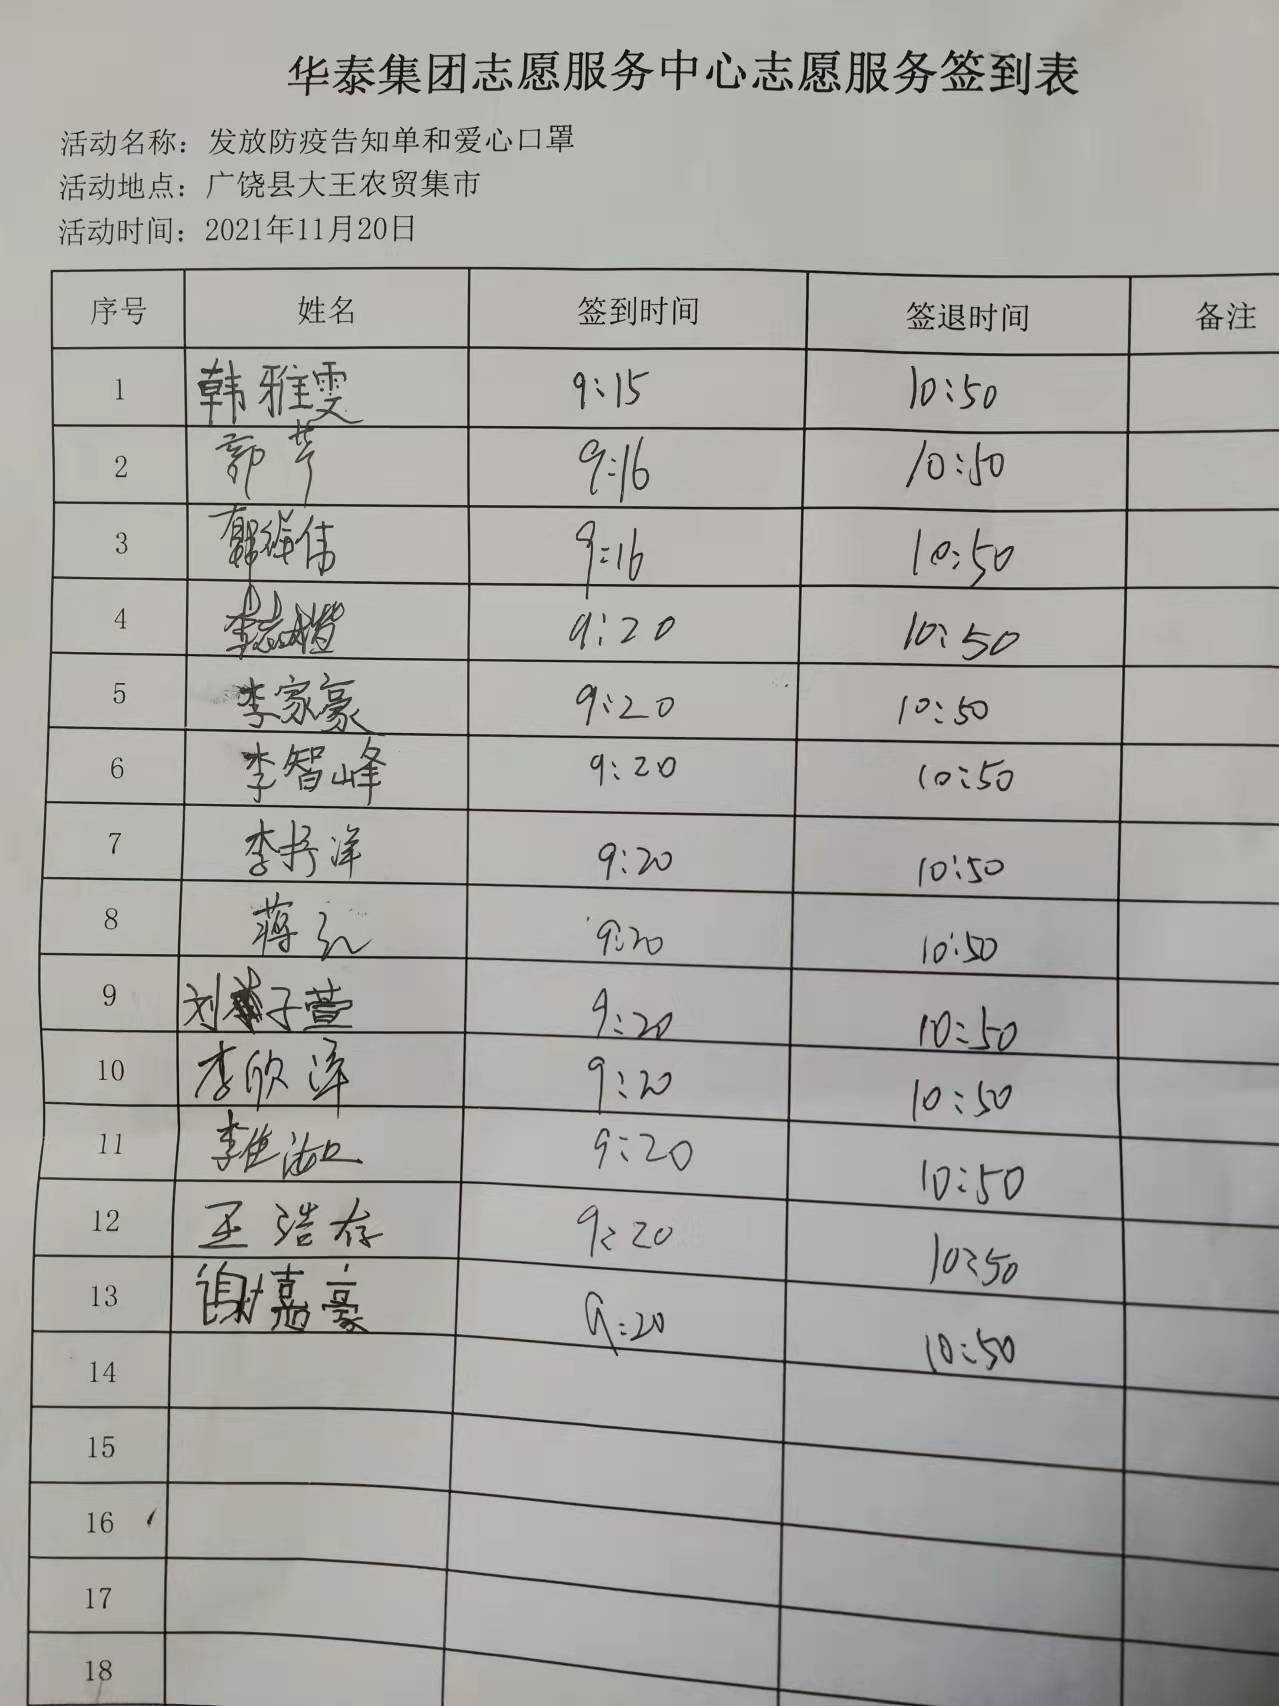 华泰集团志愿服务中心志愿服务签到表
活动名称：发放防疫告知单和爱心口罩
活动地点：广饶县大王农贸集市
活动时间：2021年11月20日
序号 姓名 签到时间 签退时间 备注
1 韩雅雯 9:15 10:50
2 郭芹 9:16 10:50
3 9:16 10:50
4 9:20 10:50
5 李家豪 9:20 10:50
6 李智峰 9:20 10:50
7 9:20 10:50
8 蒋弘 9:20 10:50
9 刘子萱 9:20 10:50
10 李欣泽 9:20 10:50
11 9:20 10:50
12 王浩存 9:20 10:50
13 谢嘉豪 9:20 10:50
14
15
16
17
18